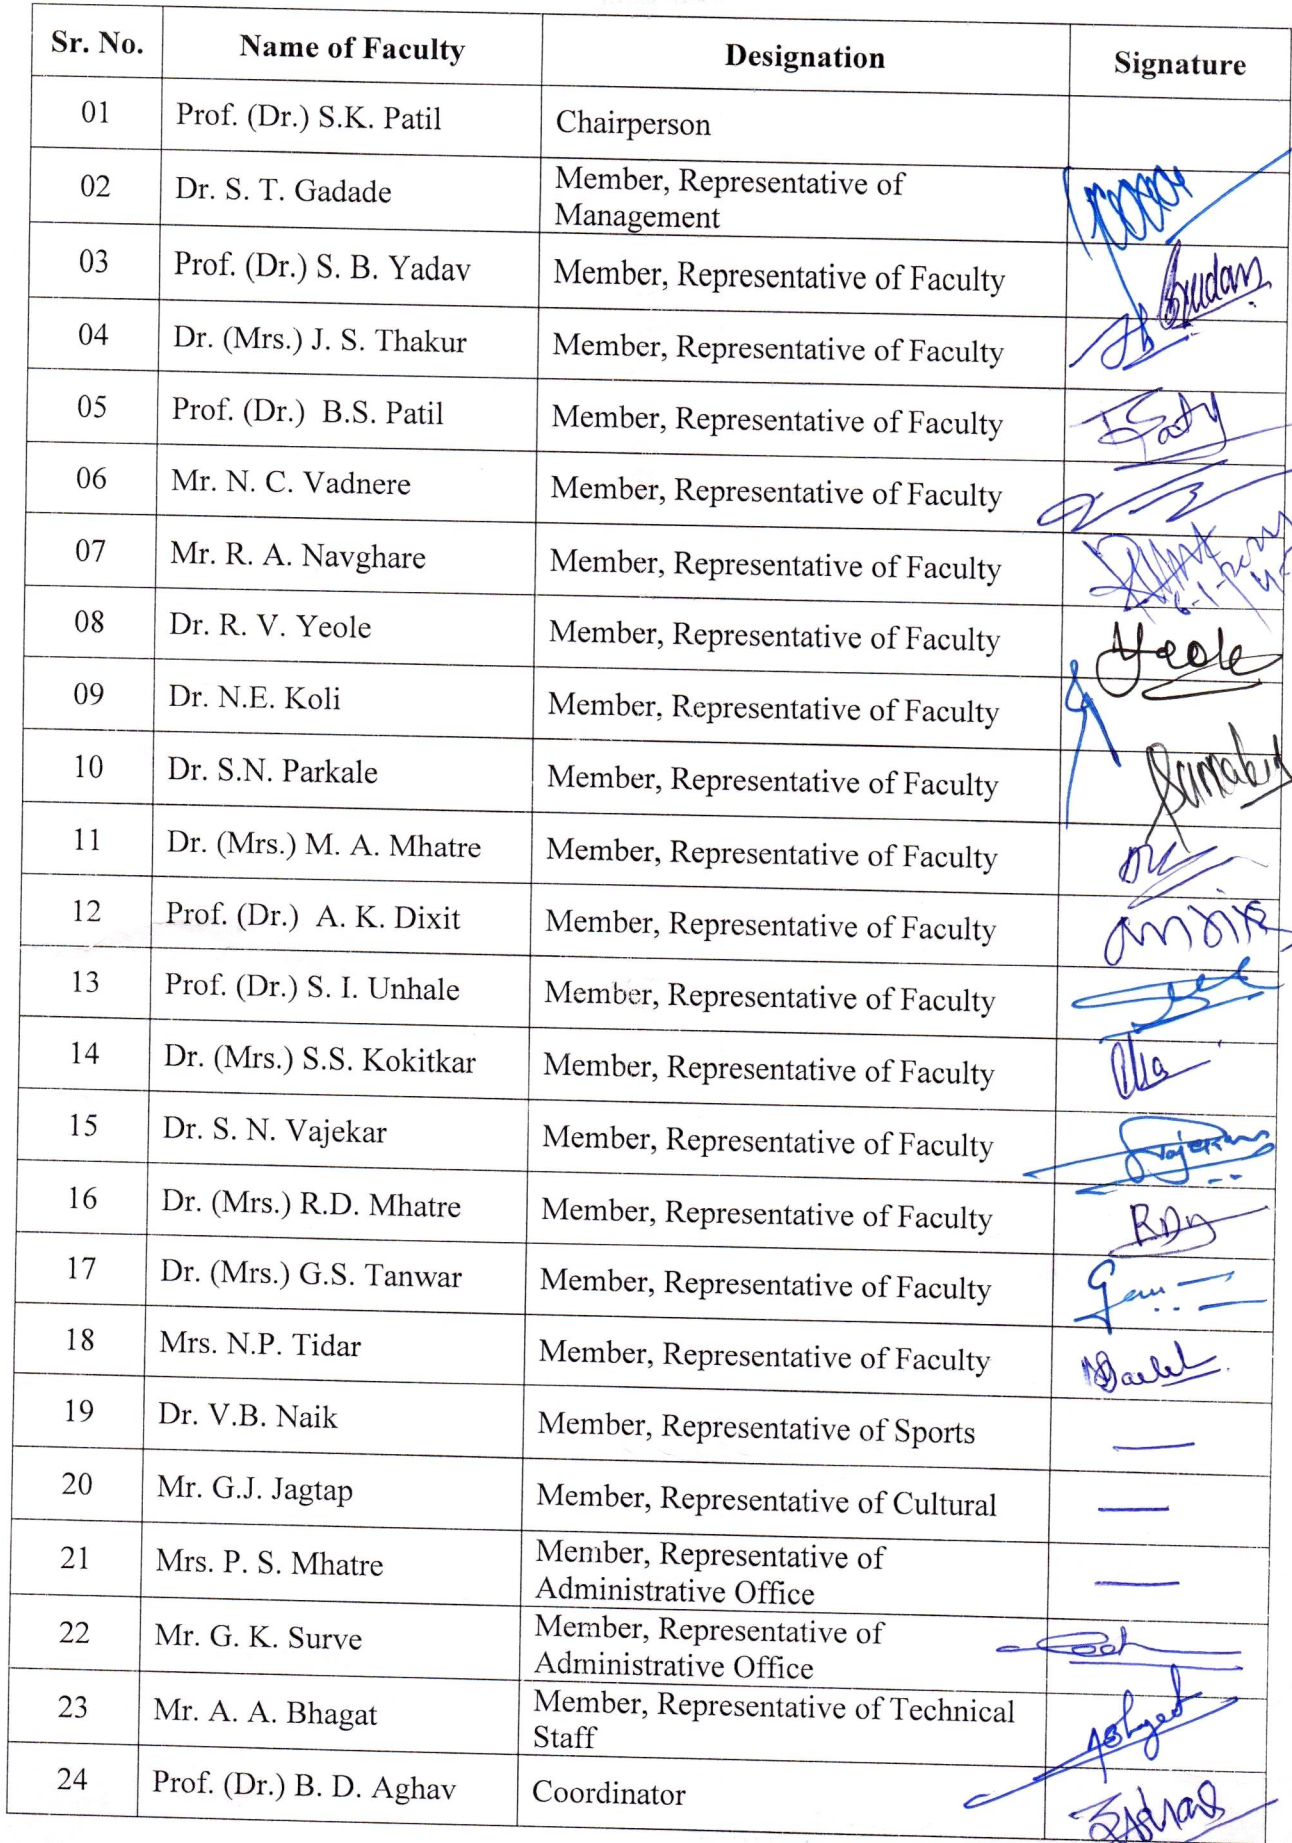 Sr. No. Name of Faculty Designation Signature
01 Prof. (Dr.) S.K. Patil Chairperson
02 Dr. S. T. Gadade Member, Representative of
Management
03 Prof. (Dr.) S. B. Yadav Member, Representative of Faculty
04 Dr. (Mrs.) J. S. Thakur Member, Representative of Faculty
05 Prof. (Dr.) B.S. Patil Member, Representative of Faculty
06 Mr. N. C. Vadnere Member, Representative of Faculty
07 Mr. R. A. Navghare Member, Representative of Faculty
08 Dr. R. V. Yeole Member, Representative of Faculty Yeole
09 Dr. N.E. Koli Member, Representative of Faculty
10 Dr. S.N. Parkale Member, Representative of Faculty
11 Dr. (Mrs.) M. A. Mhatre Member, Representative of Faculty
12 Prof. (Dr.) A. K. Dixit Member, Representative of Faculty
13 Prof. (Dr.) S. I. Unhale Member, Representative of Faculty
14 Dr. (Mrs.) S.S. Kokitkar Member, Representative of Faculty
15 Dr. S. N. Vajekar Member, Representative of Faculty
16 Dr. (Mrs.) R.D. Mhatre Member, Representative of Faculty
17 Dr. (Mrs.) G.S. Tanwar Member, Representative of Faculty
18 Mrs. N.P. Tidar Member, Representative of Faculty
19 Dr. V.B. Naik Member, Representative of Sports —
20 Mr. G.J. Jagtap Member, Representative of Cultural —
21 Mrs. P. S. Mhatre Member, Representative of
Administrative Office —
22 Mr. G. K. Surve Member, Representative of
Administrative Office
23 Mr. A. A. Bhagat Member, Representative of Technical
Staff
24 Prof. (Dr.) B. D. Aghav Coordinator